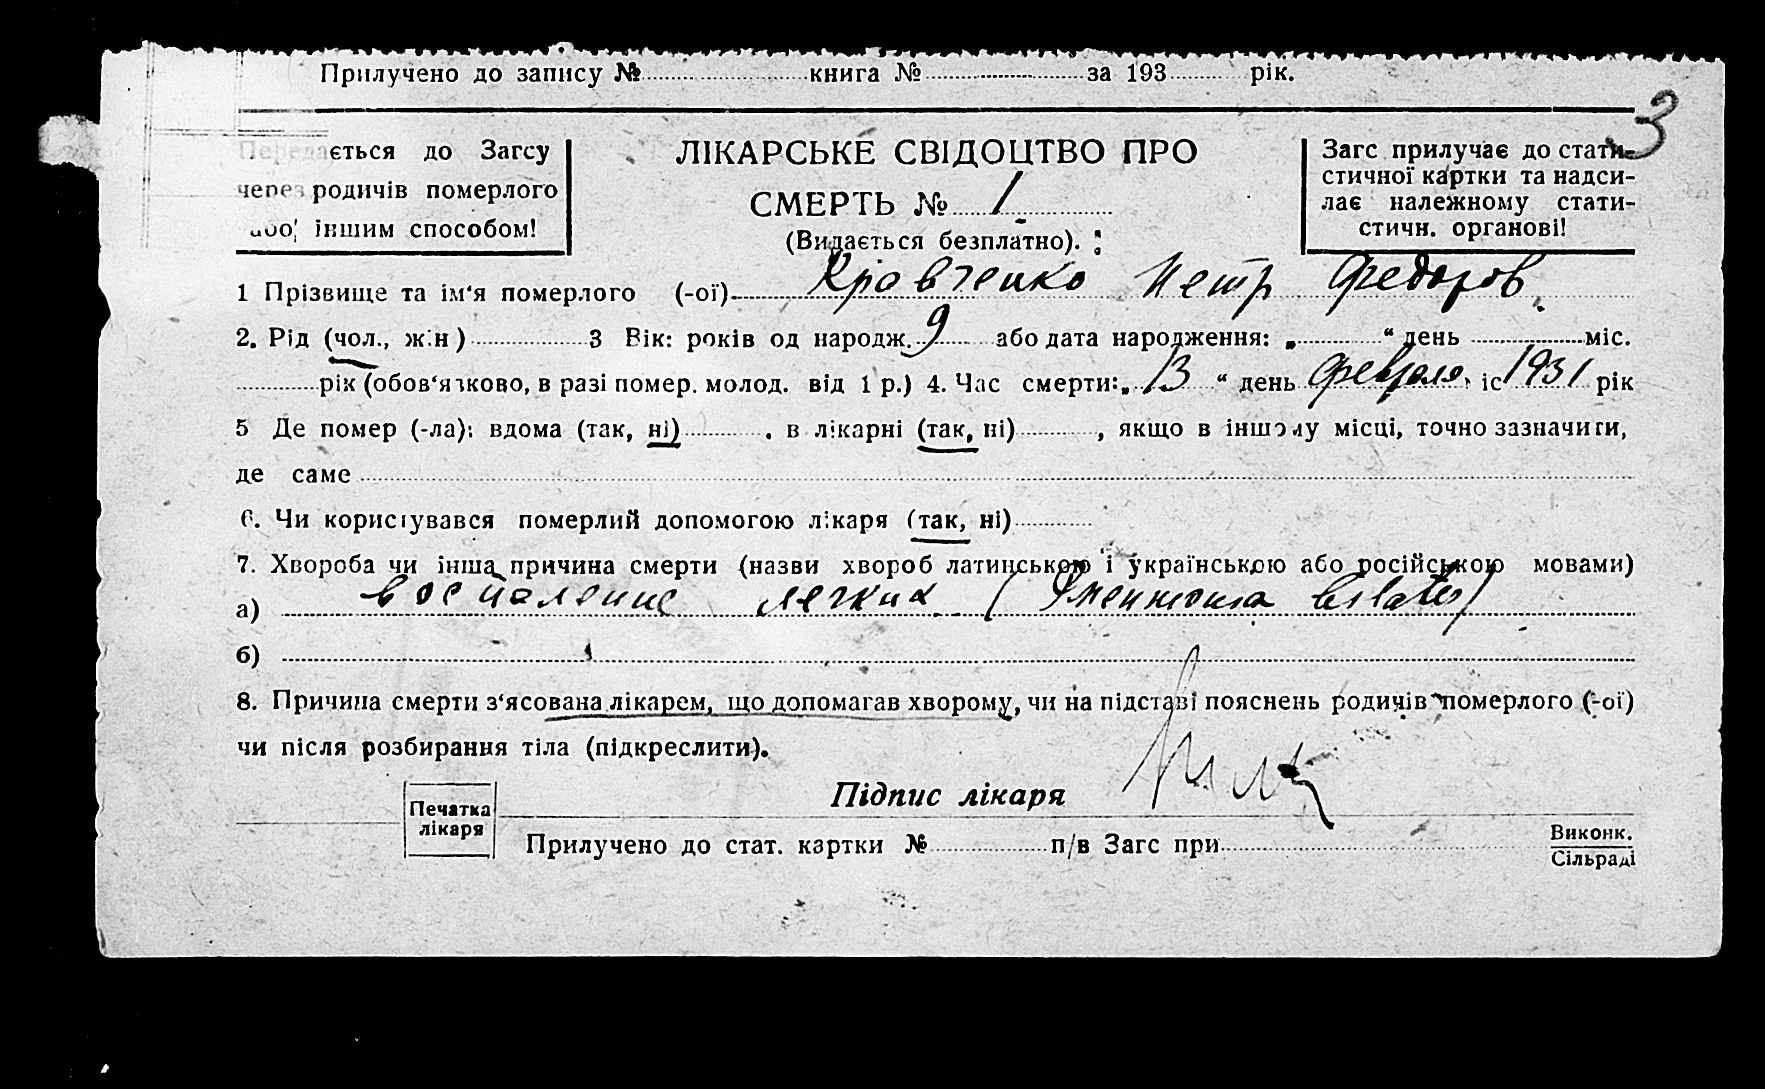 Прилучено до запису № книга № за 193 рік.
3
Передається до Загсу
через родичів померлого
або іншим способом!
ЛІКАРСЬКЕ СВІДОЦТВО ПРО
СМЕРТЬ № 1
(Видається безплатно).
Загс прилучає до стати-
стичної картки та надси-
лає належному стати-
стичн. органові!
1 Прізвище та ім'я померлого (-ої) Кравченко Петр Федоров
2. Рід (чол., жін) 3 Вік: років од народж. 9 або дата народження: „ “ день міс.
рік (обов'язково, в разі помер. молод. від 1 р.) 4. Час смерти: „ 13 “ день февраля іс 1931 рік
5 Де помер (-ла): вдома (так, ні) , в лікарні (так, ні) , якщо в іншому місці, точно зазначити,
де саме
6. Чи користувався померлий допомогою лікаря (так, ні)
7. Хвороба чи інша причина смерти (назви хвороб латинською і українською або російською мовами)
а) воспаление легких (Pneumonia
б)
8. Причина смерти з'ясована лікарем, що допомагав хворому, чи на підставі пояснень родичів померлого (-ої)
чи після розбирання тіла (підкреслити).
Підпис лікаря
Печатка
лікаря
Прилучено до стат. картки № п/в Загс при
Виконк.
Сільраді